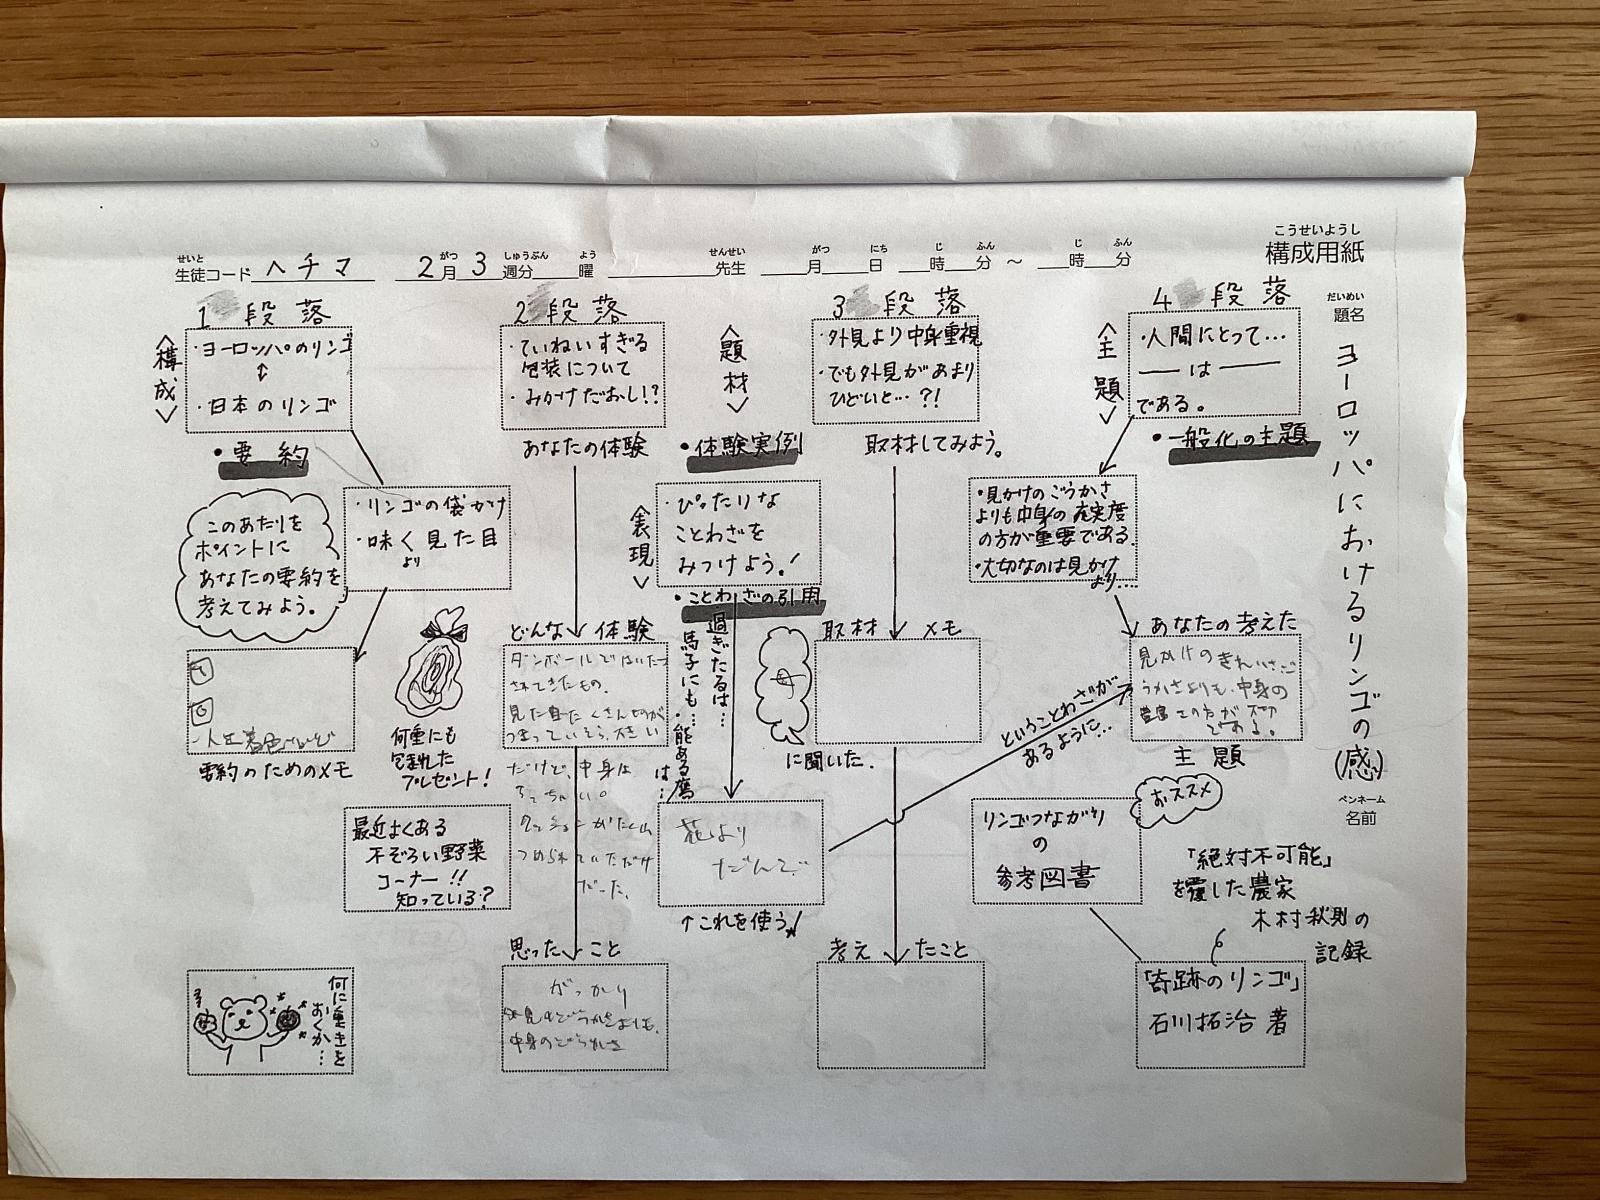 こうせいようし
構成用紙
せいと
生徒コード ヘチマ
がつ しゅうぶん よう
2月3週分 曜
せんせい
先生
がつ にち じ ふん じ ふん
月 日 時 分 ～ 時 分
だいめい
題名
ヨーロッパにおけるリンゴの(感)
ペンネーム
名前
1 段落
<構成>
・ヨーロッパのリンゴ
↕
・日本のリンゴ
・要約
・リンゴの袋かけ
・味<見た目
より
このあたりを
ポイントに
あなたの要約を
考えてみよう。
要約のためのメモ
何重にも
包まれた
プレゼント!
最近よくある
不ぞろい野菜
コーナー!!
知っている?
何に重きを
おくか…
2 段落
・ていねいすぎる
包装について
・みかけだおし!?
あなたの体験
どんな体験
ダンボールで
されてきたもの。
見た目たくさんものが
つまっていそう、大きい
だけど、中身は
ちっちゃい。
つめられていただけ
だった。
思ったこと
がっかり
中身の
<題材>
・体験実例
<表現>
・ぴったりな
ことわざを
みつけよう!
・ことわざの引用
過ぎたるは…
馬子にも…
・能ある鷹は…
花より
だんご
↑これを使う!
3 段落
・外見より中身重視
・でも外見があまり
ひどいと…?!
取材してみよう。
取材メモ
母
に聞いた。
考えたこと
ということわざが
あるように…
4 段落
<主題>
・人間にとって…
── は ──
である。
・一般化の主題
・見かけのごうかさ
よりも中身の充実度
の方が重要である。
・大切なのは見かけ
より…
あなたの考えた
見かけのきれいさ
うかさよりも、中身の
である。
主題
おススメ
リンゴつながり
の
参考図書
「絶対不可能」
を覆した農家
木村秋則の
記録
「奇跡のリンゴ」
石川拓治 著